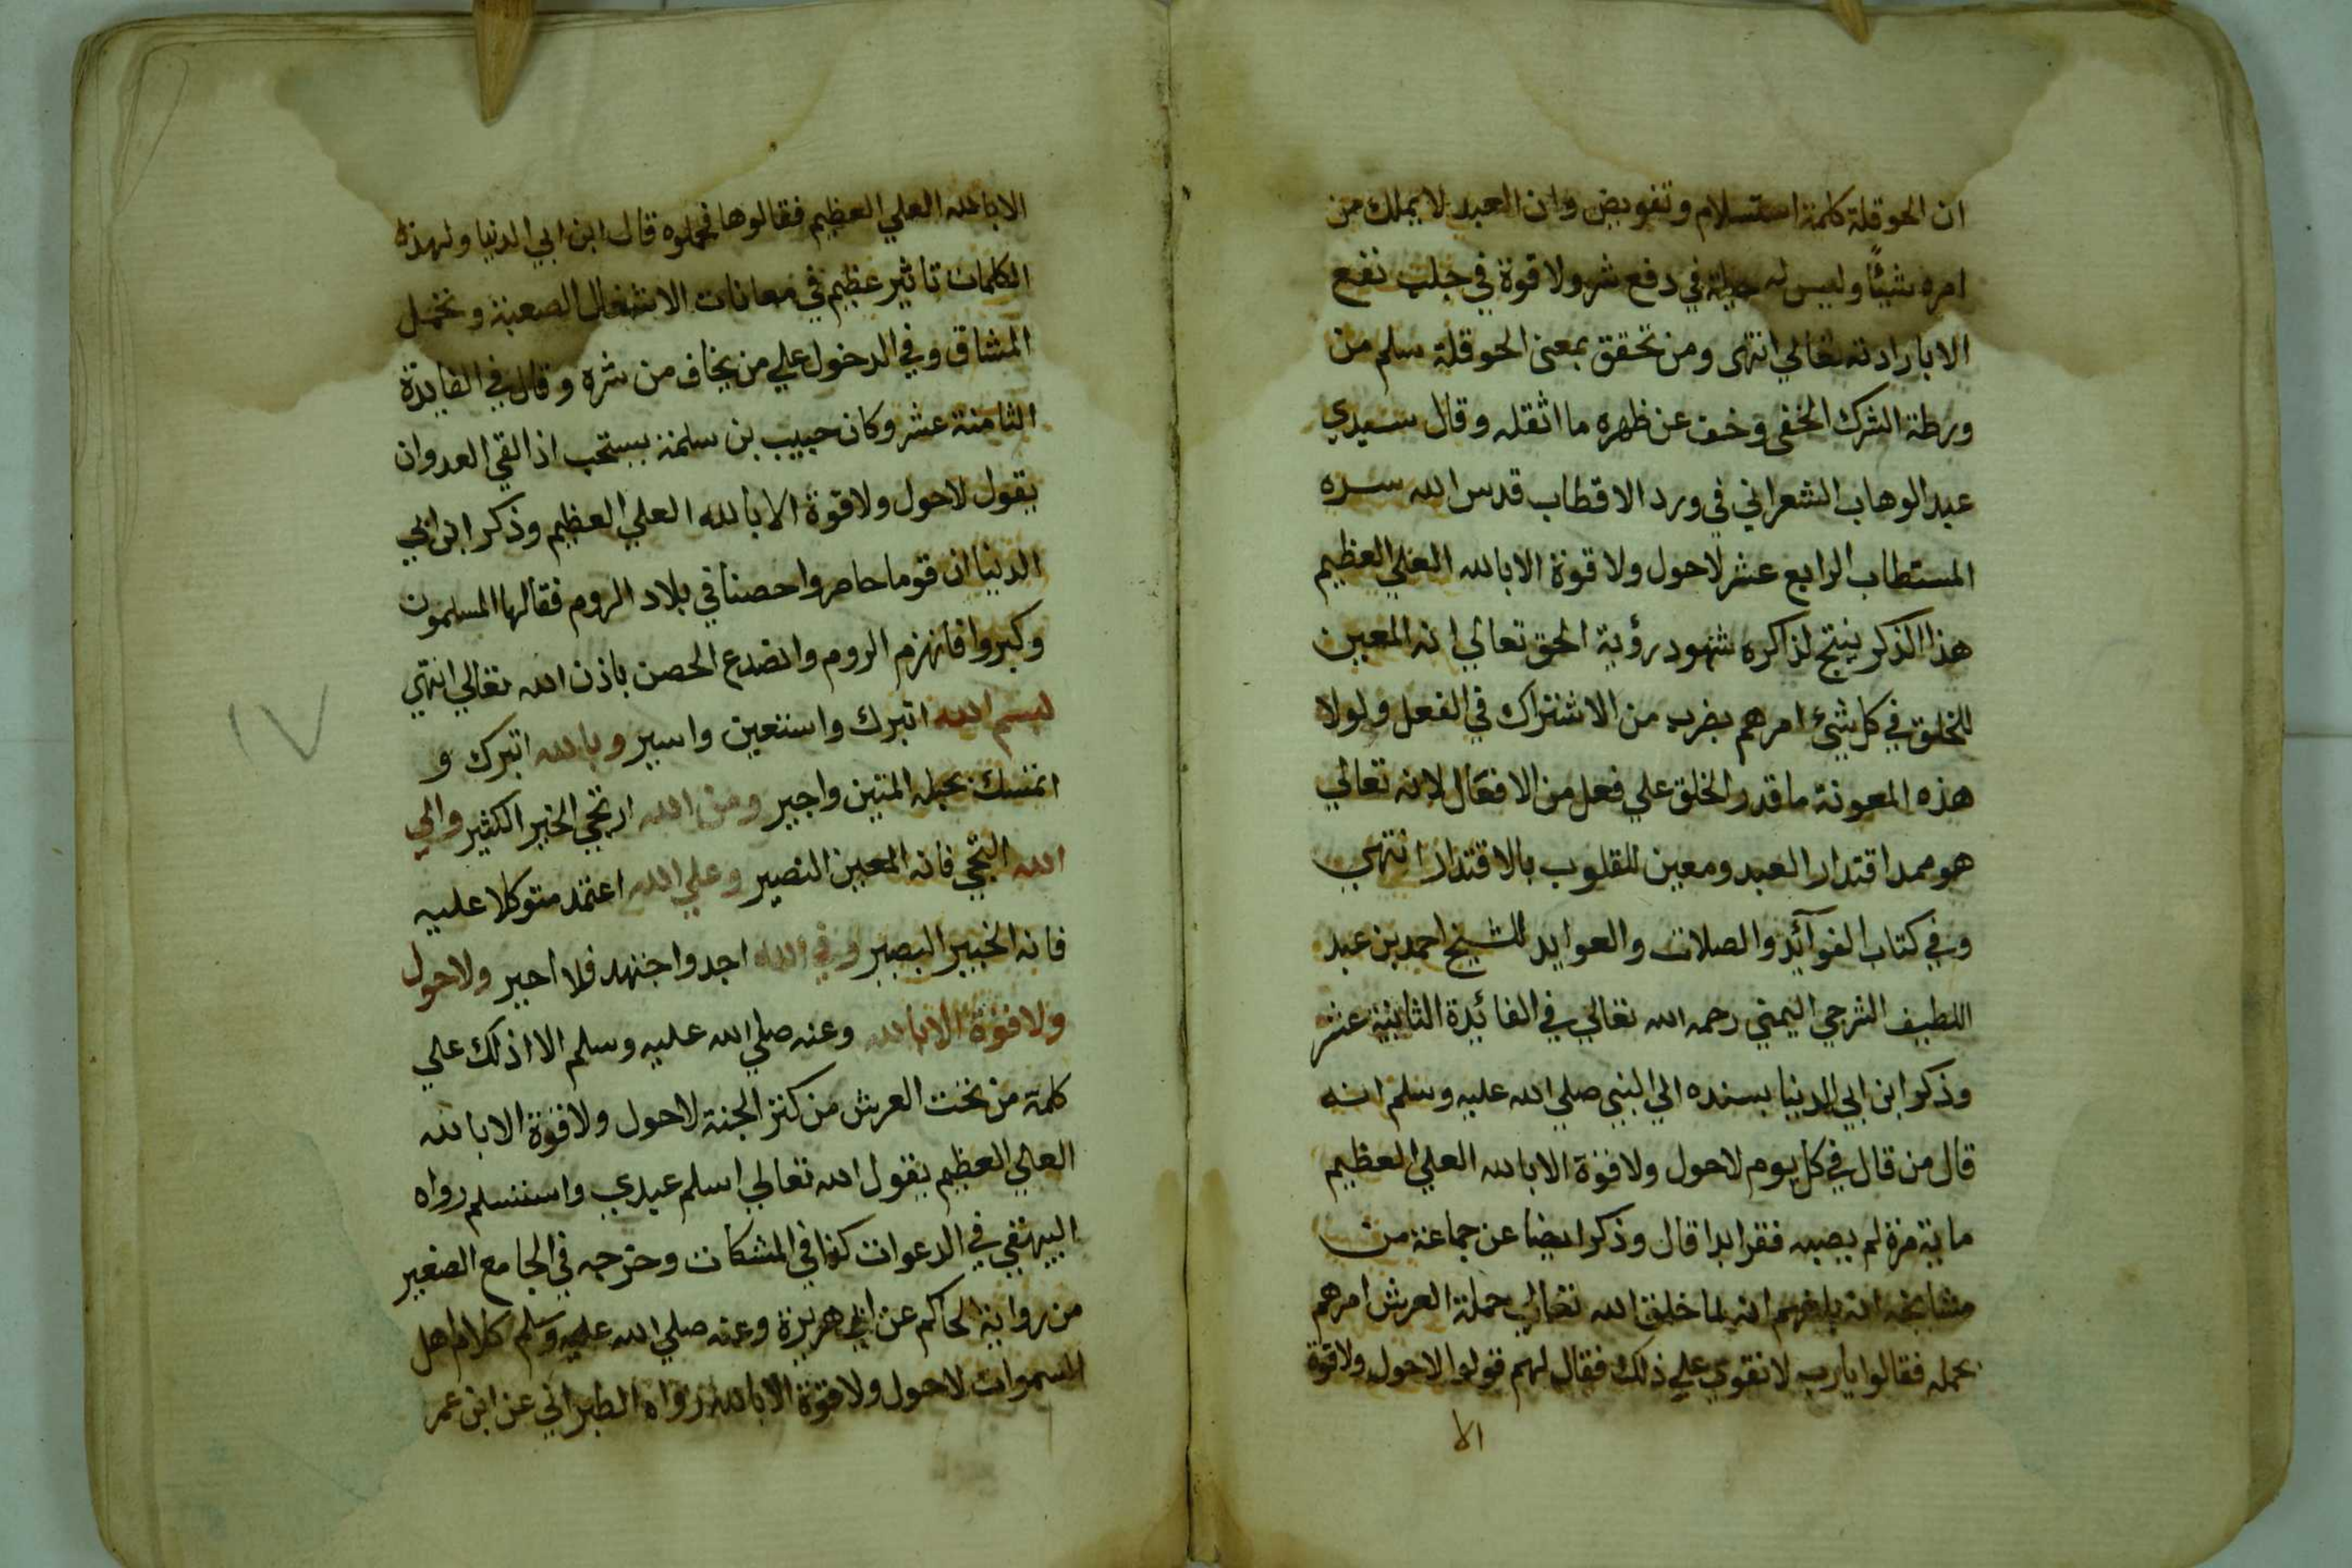 ان الحوقلة كلمة استسلام وتفويض وان العبد لا يملك من
امره شيئًا وليس له حيلة في دفع شر ولا قوة في جلب نفع
الا بارادته تعالي انتهى ومن تحقق بمعنى الحوقلة سلم من
ورطة الشرك الخفي وخف عن ظهره ما اثقله وقال سيدي
عبد الوهاب الشعراني في ورد الاقطاب قدس الله سره
المستطاب الرابع عشر لاحول ولا قوة الا بالله العلي العظيم
هذا الذكر ينتج لذاكره شهود رؤية الحق تعالي انه المعين
للخلق في كل شيء امرهم بضرب من الاشتراك في الفعل ولولا
هذه المعونة ما قدر الخلق علي فعل من الافعال لانه تعالي
هو ممد اقتدار العبد ومعين للقلوب بالاقتدار انتهي
وفي كتاب الفوآئد والصلات والعوايد للشيخ احمد بن عبد
اللطيف الشرجي اليمني رحمه الله تعالي في الفائدة الثانية عشر
وذكر ابن ابي الدنيا بسنده الي النبي صلي الله عليه وسلم انه
قال من قال في كل يوم لاحول ولا قوة الا بالله العلي العظيم
ماية مرة لم يصبه فقر ابدا قال وذكر ايضا عن جماعة من
مشايخه انه بلغهم انه لما خلق الله تعالي حملة العرش امرهم
بحمله فقالوا يارب لا نقوي علي ذلك فقال لهم قولوا لاحول ولا قوة
الا
الا بالله العلي العظيم فقالوها فحملوه قال ابن ابي الدنيا ولهذه
الكلمات تاثير عظيم في معانات الاشغال الصعبة وتحمل
المشاق وفي الدخول علي من يخاف من شره وقال في الفايدة
الثامنة عشر وكان حبيب بن سلمة يستحب اذا لقي العدو ان
يقول لاحول ولا قوة الا بالله العلي العظيم وذكر ابن ابي
الدنيا ان قوما حاصروا حصنا في بلاد الروم فقالها المسلمون
وكبروا فانهزم الروم وانصدع الحصن باذن الله تعالي انتهي
بسم الله اتبرك واستعين واسير وبالله اتبرك و
اتمسك بحبله المتين واجير ومن الله ارتجي الخير الكثير والي
الله التجي فانه المعين النصير وعلي الله اعتمد متوكلا عليه
فانه الخبير البصير وفي الله اجد واجتهد فلا احير ولاحول
ولا قوة الا بالله وعنه صلي الله عليه وسلم الا ادلك علي
كلمة من تحت العرش من كنز الجنة لاحول ولا قوة الا بالله
العلي العظيم يقول الله تعالي اسلم عبدي واستسلم رواه
البيهقي في الدعوات كما في المشكات وخرجه في الجامع الصغير
من رواية الحاكم عن ابي هريرة وعنه صلي الله عليه وسلم كلام اهل
السموات لاحول ولا قوة الا بالله رواه الطبراني عن ابن عمر
١٧